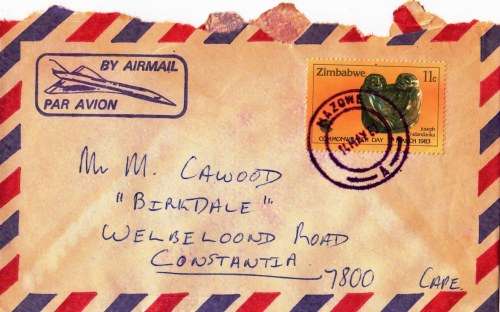 BY AIRMAIL
PAR AVION
Zimbabwe 11c
COMMONWEALTH DAY MARCH 1983
MAZOWE
A
Mr M. CAWOOD
"BIRKDALE"
WELBELOOND ROAD
CONSTANTIA
7800 CAPE.